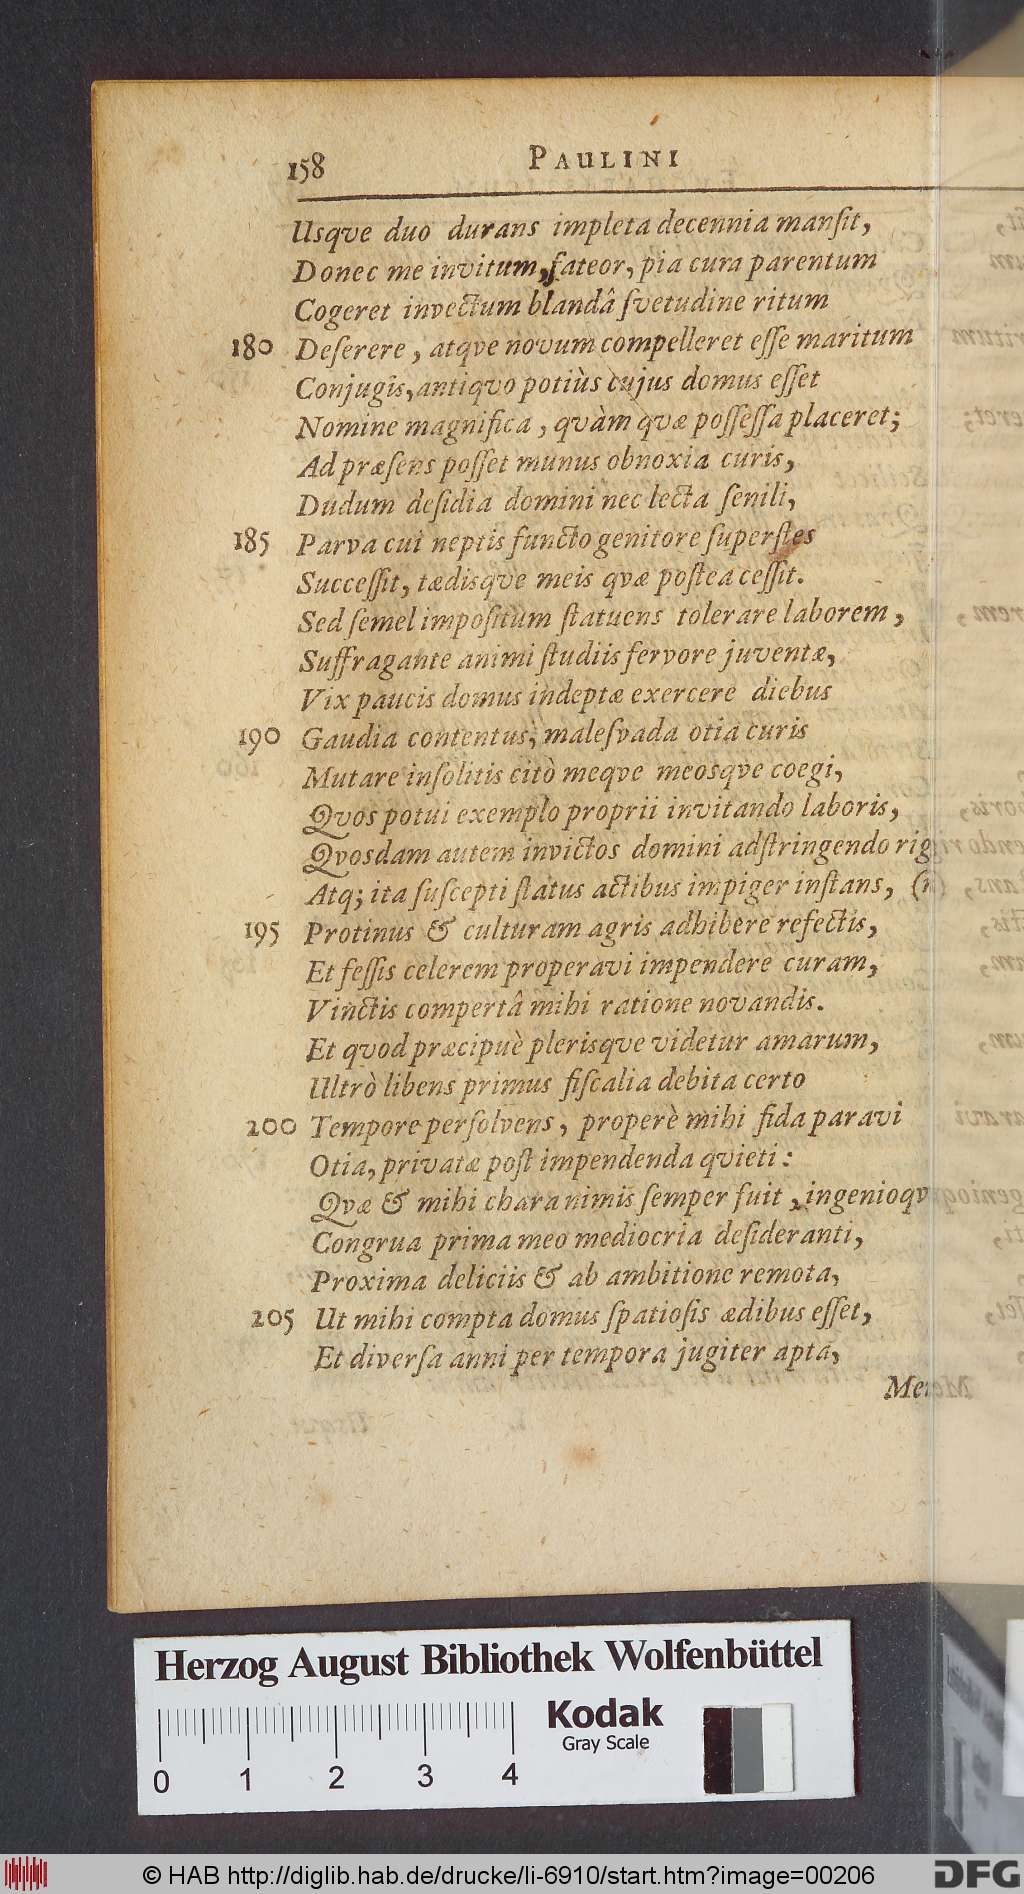 158 PAULINI
Usqve duo durans impleta decennia manſit,
Donec me invitum, fateor, pia cura parentum
Cogeret invectum blandâ ſvetudine ritum
180 Deſerere, atqve novum compelleret eſſe maritum
Conjugis, antiqvo potiùs cujus domus eſſet
Nomine magnifica, qvàm qvæ poſſeſſa placeret;
Ad præſens poſſet munus obnoxia curis,
Dudum deſidia domini nec lecta ſenili,
185 Parva cui neptis functo genitore ſuperſtes
Succeſſit, tædisqve meis qvæ poſtea ceſſit.
Sed ſemel impoſitum ſtatuens tolerare laborem,
Suffragante animi ſtudiis fervore juventæ,
Vix paucis domus indeptæ exercere diebus
190 Gaudia contentus, maleſvada otia curis
Mutare inſolitis citò meqve meosqve coegi,
Qvos potui exemplo proprii invitando laboris,
Qvosdam autem invictos domini adſtringendo rig
Atq; ita ſuſcepti ſtatus actibus impiger inſtans, (n
195 Protinus & culturam agris adhibere refectis,
Et feſſis celerem properavi impendere curam,
Vinctis compertâ mihi ratione novandis.
Et qvod præcipuè plerisqve videtur amarum,
Ultrò libens primus fiſcalia debita certo
200 Tempore perſolvens, properè mihi fida paravi
Otia, privatæ poſt impendenda qvieti:
Qvæ & mihi chara nimis ſemper fuit, ingenioqv
Congrua prima meo mediocria deſideranti,
Proxima deliciis & ab ambitione remota,
205 Ut mihi compta domus ſpatioſis ædibus eſſet,
Et diverſa anni per tempora jugiter apta,
Me
Herzog August Bibliothek Wolfenbüttel
Kodak
Gray Scale
0 1 2 3 4
© HAB http://diglib.hab.de/drucke/li-6910/start.htm?image=00206
DFG